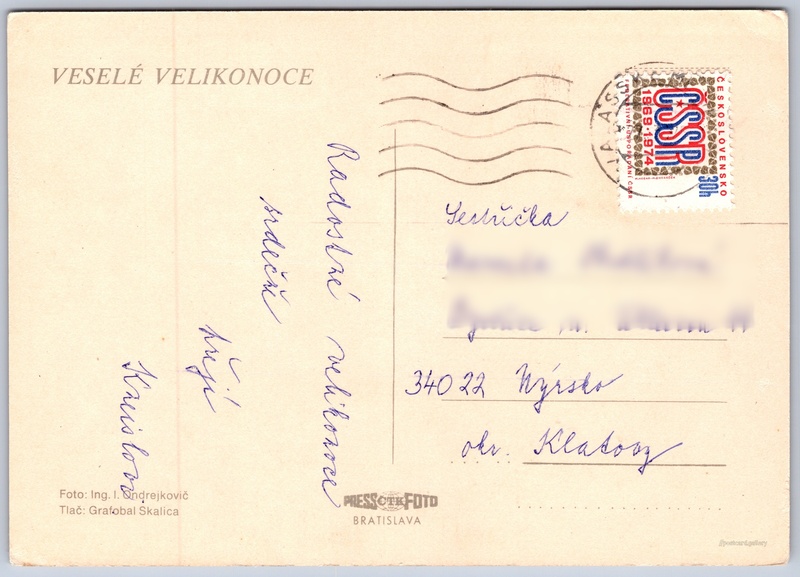 VESELÉ VELIKONOCE
Radostné velikonoce
srdečně
přejí
Kreislovi
Foto: Ing. I. Ondrejkovič
Tlač: Grafobal Skalica
PRESS ČTK FOTO
BRATISLAVA
ČESKOSLOVENSKO
30h
ČSSR
1969·1974
Slečička
34022 Nýrsko
okr. Klatovy